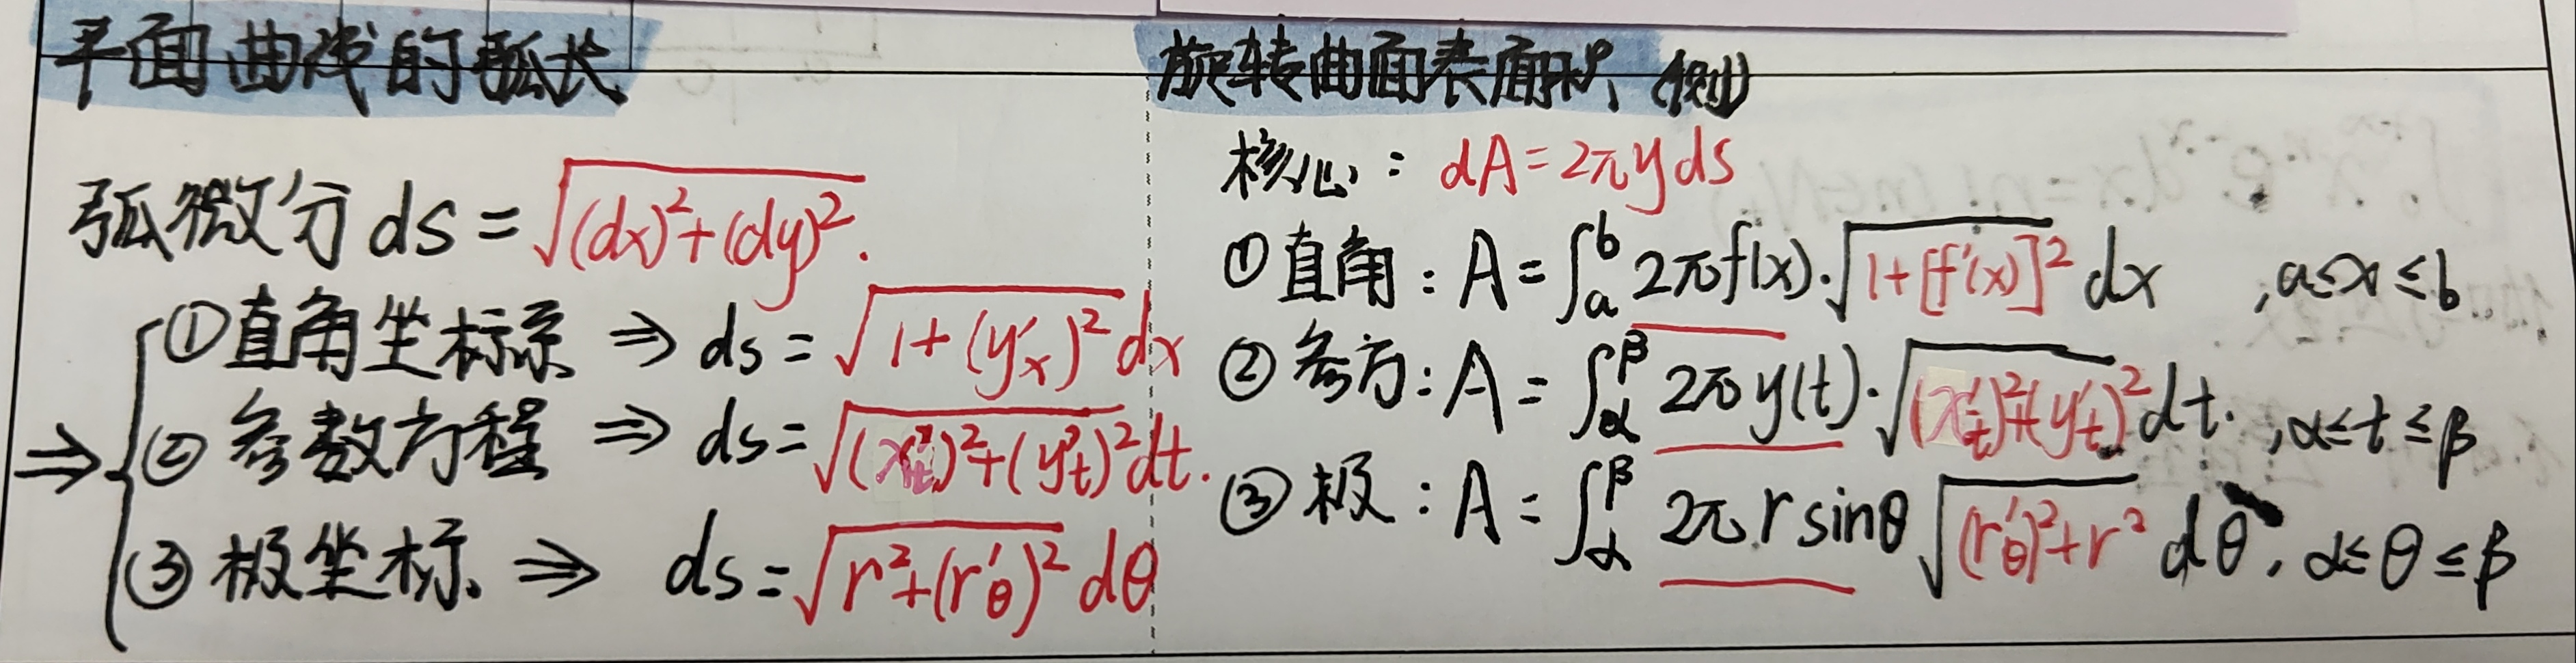 平面曲线的弧长
弧微分 ds = √((dx)²+(dy)²).
⇒ { ①直角坐标系 ⇒ ds = √(1+(y'ₓ)²) dx
② 参数方程 ⇒ ds = √((x'ₜ)²+(y'ₜ)²) dt.
③ 极坐标. ⇒ ds = √(r²+(r'_θ)²) dθ
旋转曲面表面积 (侧)
核心: dA = 2πyds
①直角: A = ∫ₐᵇ 2πf(x)·√(1+[f'(x)]²) dx , a≤x≤b
② 参方: A = ∫_α^β 2πy(t)·√((x'ₜ)²+(y'ₜ)²) dt. , α≤t≤β
③ 极: A = ∫_α^β 2πr sinθ √((r'_θ)²+r²) dθ, α≤θ≤β